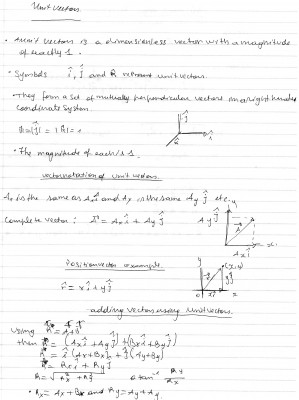 Unit vectors
• A unit vectors is a dimensionless vector with a magnitude of exactly 1.
• Symbols î, ĵ and k̂ represent unit vectors.
• They form a set of mutually perpendicular vectors in a right handed coordinate system
|î| = |ĵ| = |k̂| =
ĵ
î
k̂
• The magnitude of each is 1.
vector notation of unit vectors.
Ax is the same as Ax î and Ay is the same Ay ĵ etc.
complete vector: A⃗ = Ax î + Ay ĵ
Ay ĵ
y
x
Ax î
Position vector example.
r̂ = xî + yĵ
y
(x, y)
x
adding vectors using unit vectors.
using R⃗ = A⃗ + B⃗
then R⃗ = (Ax î + Ay ĵ) + (Bx î + By ĵ)
R⃗ = î (Ax + Bx) + ĵ (Ay + By)
R⃗ = Rx î + Ry ĵ
R = √Rx² + Ry²
θ tan⁻¹ Ry/Rx
• Rx = Ax + Bx and Ry = Ay + Ay.